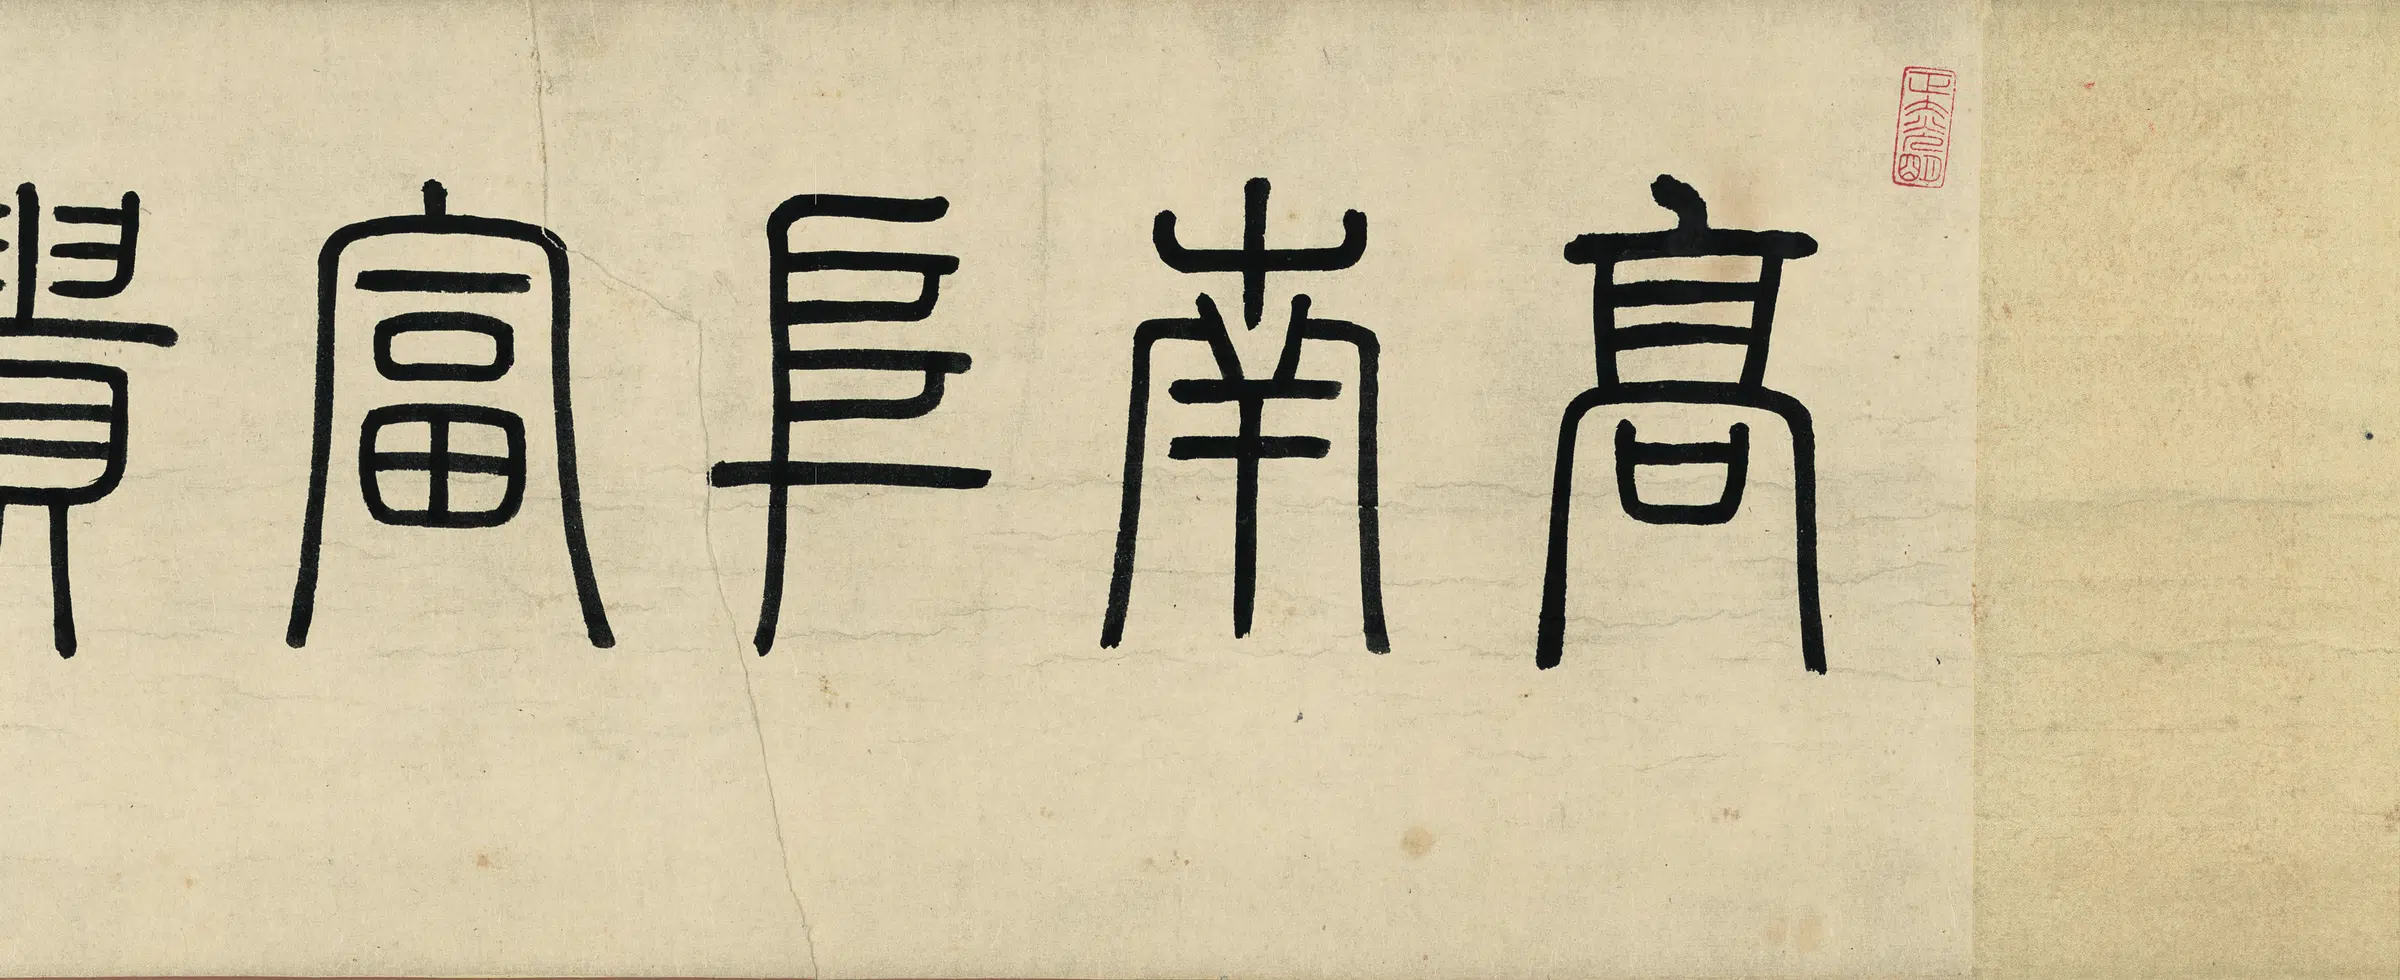 高南阜富貴